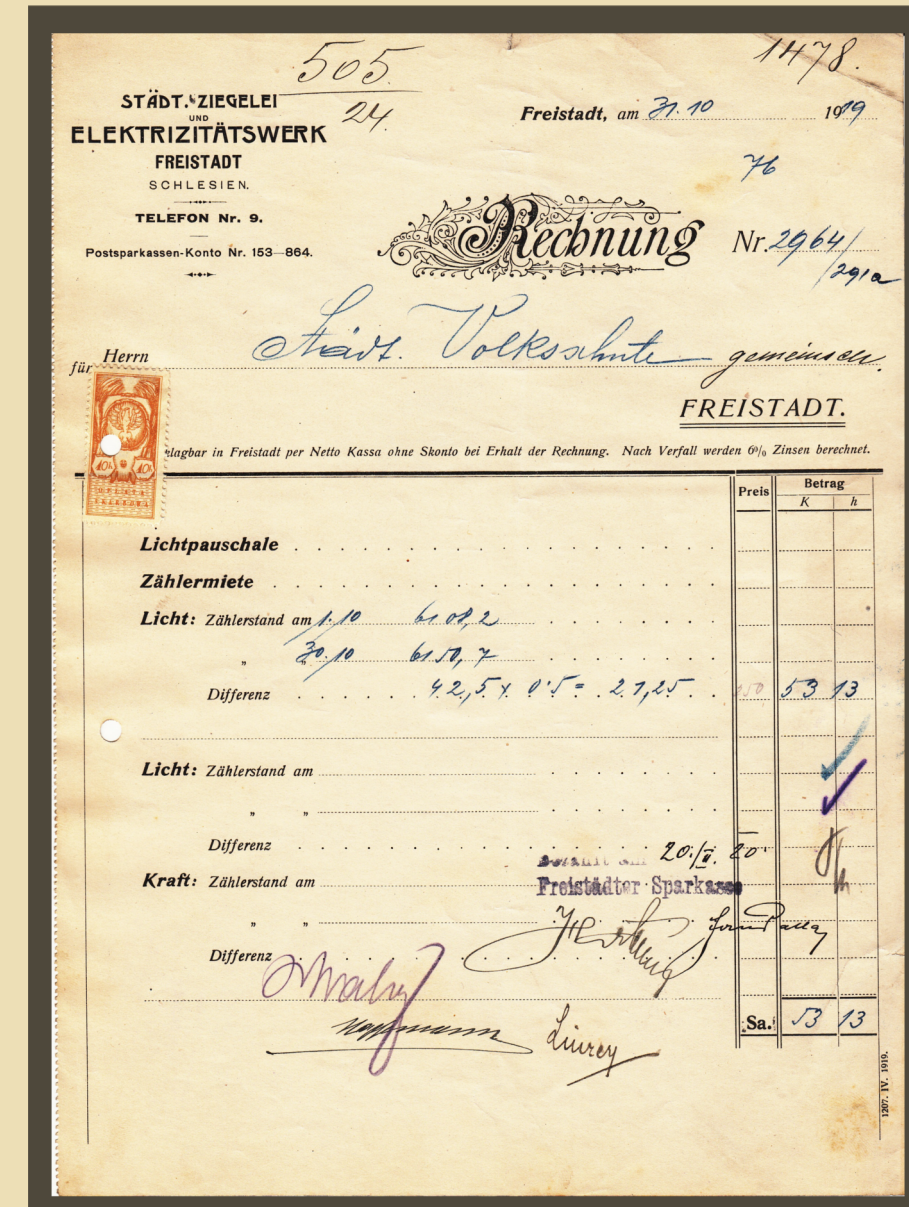 505.
24.
1478.
STÄDT. ZIEGELEI
UND
ELEKTRIZITÄTSWERK
FREISTADT
SCHLESIEN.
TELEFON Nr. 9.
Postsparkassen-Konto Nr. 153—864.
Freistadt, am 31.10 1919
76
Rechnung Nr. 2964/
/291a
für Herrn Städt. Volksschule
FREISTADT.
lagbar in Freistadt per Netto Kassa ohne Skonto bei Erhalt der Rechnung. Nach Verfall werden 6% Zinsen berechnet.
10h 10h
Preis Betrag
K h
Lichtpauschale
Zählermiete
Licht: Zählerstand am 1.10 6108,2
" " 30.10 6150,7
Differenz 42,5 x 0.5 = 21,25 250 53 13
Licht: Zählerstand am
" "
Differenz
20./II. 20
Kraft: Zählerstand am
Freistädter Sparkasse
" "
Differenz
Sa. 53 13
1207. IV. 1919.